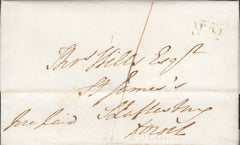 No 2
Thos Wills Esqr
St James's
Shaftesbury
Dorset
Pre paid